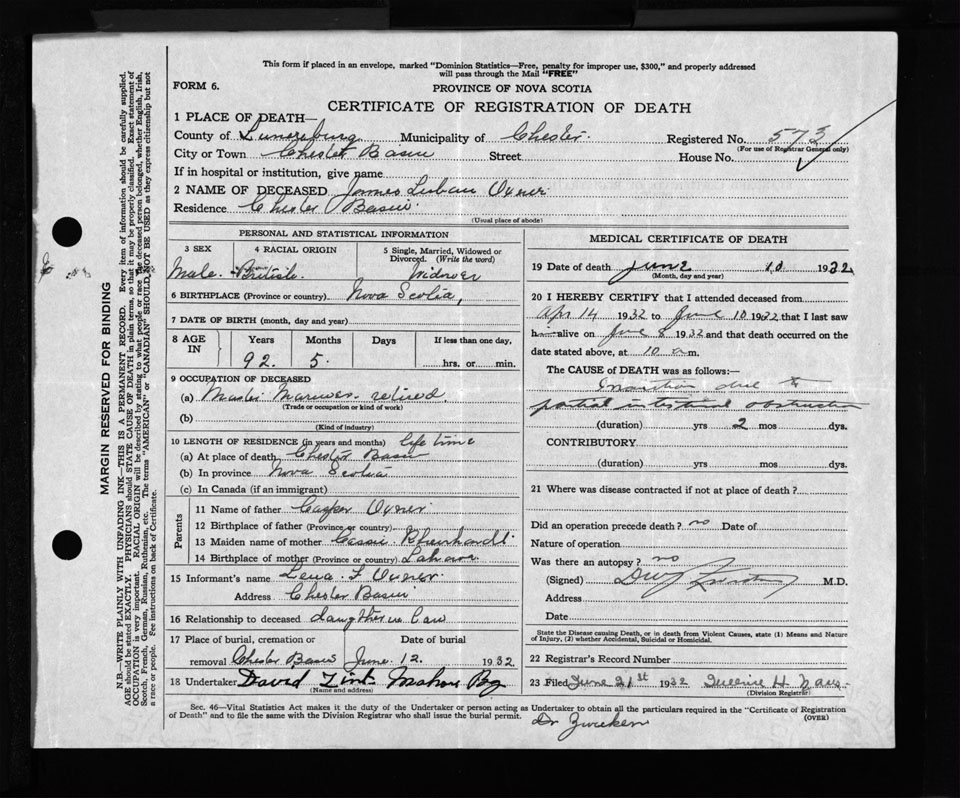 This form if placed in an envelope, marked "Dominion Statistics—Free, penalty for improper use, $300," and properly addressed
will pass through the Mail "FREE"
FORM 6.
PROVINCE OF NOVA SCOTIA
CERTIFICATE OF REGISTRATION OF DEATH
1 PLACE OF DEATH—
County of Lunenburg Municipality of Chester. Registered No. 573
(For use of Registrar General only)
City or Town Chester Basin Street House No.
If in hospital or institution, give name
2 NAME OF DECEASED James Oxner
Residence Chester Basin
(Usual place of abode)
PERSONAL AND STATISTICAL INFORMATION
3 SEX 4 RACIAL ORIGIN 5 Single, Married, Widowed or Divorced. (Write the word)
Male. British. Widower
6 BIRTHPLACE (Province or country) Nova Scotia,
7 DATE OF BIRTH (month, day and year)
8 AGE IN Years Months Days If less than one day,
92. 5. hrs. or min.
9 OCCUPATION OF DECEASED
(a) Master Mariner. retired
(Trade or occupation or kind of work)
(b)
(Kind of industry)
10 LENGTH OF RESIDENCE (in years and months) life time
(a) At place of death Chester Basin
(b) In province Nova Scotia
(c) In Canada (if an immigrant)
Parents
11 Name of father Casper Oxner
12 Birthplace of father (Province or country)
13 Maiden name of mother
14 Birthplace of mother (Province or country) Lahave
15 Informant's name Lena F Oxner.
Address Chester Basin
16 Relationship to deceased Daughter in Law
17 Place of burial, cremation or Date of burial
removal Chester Basin June. 12. 1932
18 Undertaker David Zink Mahone Bay
(Name and address)
MEDICAL CERTIFICATE OF DEATH
19 Date of death June 10 1932
(Month, day and year)
20 I HEREBY CERTIFY that I attended deceased from
Apr 14 1932 to June 10 1932 that I last saw
him alive on June 8 1932 and that death occurred on the
date stated above, at 10 a m.
The CAUSE of DEATH was as follows:—
Inanition due to
partial intestinal obstruction
(duration) yrs 2 mos dys.
CONTRIBUTORY
(duration) yrs mos dys.
21 Where was disease contracted if not at place of death?
Did an operation precede death? no Date of
Nature of operation
Was there an autopsy? no
(Signed) M.D.
Address
Date
State the Disease causing Death, or in death from Violent Causes, state (1) Means and Nature
of Injury, (2) whether Accidental, Suicidal or Homicidal.
22 Registrar's Record Number
23 Filed June 21st 1932
(Division Registrar)
Sec. 46—Vital Statistics Act makes it the duty of the Undertaker or person acting as Undertaker to obtain all the particulars required in the "Certificate of Registration
of Death" and to file the same with the Division Registrar who shall issue the burial permit.
(OVER)
Dr Zwicker
MARGIN RESERVED FOR BINDING
N.B.—WRITE PLAINLY WITH UNFADING INK—THIS IS A PERMANENT RECORD. Every item of information should be carefully supplied.
AGE should be stated EXACTLY. PHYSICIANS should STATE CAUSE OF DEATH in plain terms, so that it may be properly classified. Exact statement of
OCCUPATION is very important. RACIAL ORIGIN will be described by stating to what people or race the deceased person belonged, whether English, Irish,
Scotch, French, German, Russian, Ruthenian, etc. The terms "AMERICAN" or "CANADIAN" SHOULD NOT BE USED as they express citizenship but not
a race or people. See instructions on back of Certificate.